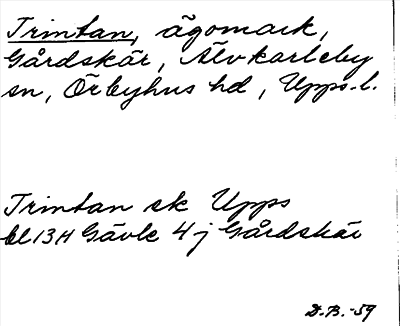 Trintan, ägomark,
Gårdskär, Älvkarleby
sn, Örbyhus hd, Upps. l.
Trintan sk Upps
bl 13H Gävle 4 j Gårdskär
D.B. -59